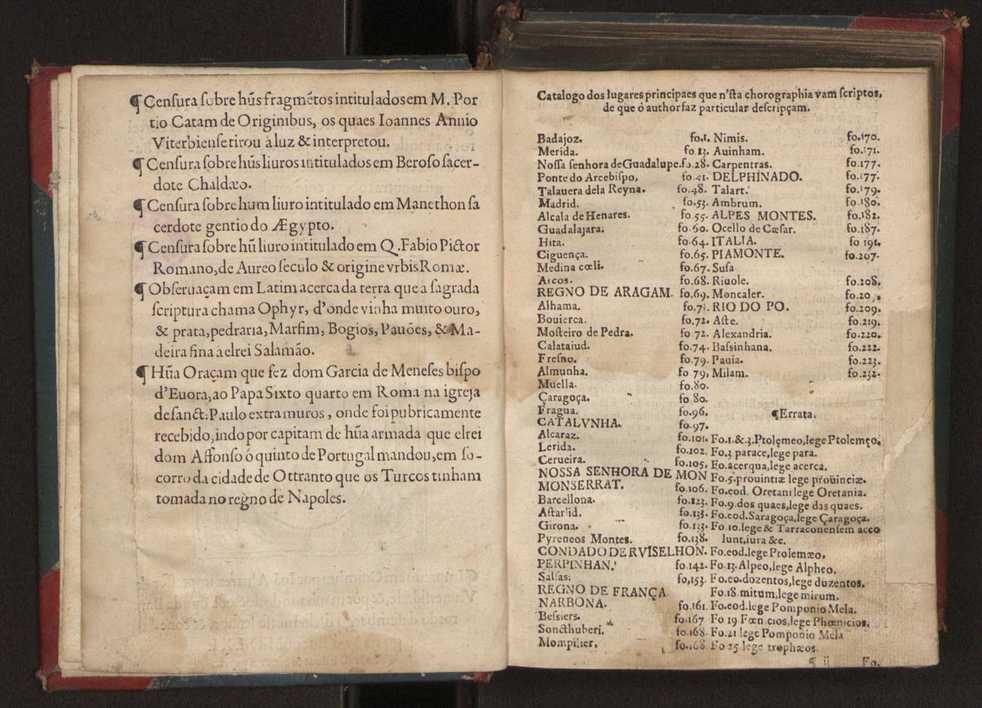 ¶ Censura sobre hũs fragmẽtos intitulados em M. Por
tio Catam de Originibus, os quaes Ioannes Annio
Viterbiense tirou à luz & interpretou.
¶ Censura sobre hũs liuros intitulados em Beroso sacer-
dote Chaldæo.
¶ Censura sobre hum liuro intitulado em Manethon sa
cerdote gentio do Ægypto.
¶ Censura sobre hũ liuro intitulado em Q. Fabio Pictor
Romano, de Aureo seculo & origine vrbis Romæ.
¶ Obseruaçam em Latim acerca da terra que a sagrada
scriptura chama Ophyr, d'onde vinha muito ouro,
& prata, pedraria, Marfim, Bogios, Pauões, & Ma-
deira fina a elrei Salamão.
¶ Hũa Oraçam que fez dom Garcia de Meneses bispo
d'Euora, ao Papa Sixto quarto em Roma na igreja
de sanct. Paulo extra muros, onde foi pubricamente
recebido, indo por capitam de hũa armada que elrei
dom Affonso ó quinto de Portugal mandou, em so-
corro da cidade de Ottranto que os Turcos tinham
tomada no regno de Napoles.
Catalogo dos lugares principaes que n'sta chorographia vam scriptos,
de que ó author faz particular descripçam.
Badajoz. fo.1.
Merida. fo.13.
Nossa senhora de Guadalupe. fo.28.
Ponte do Arcebispo, fo.41.
Talauera dela Reyna. fo.48.
Madrid. fo.53.
Alcala de Henares. fo.55.
Guadalajara. fo.60.
Hita. fo.64.
Ciguença. fo.65.
Medina cœli. fo.67.
Arcos. fo.68.
REGNO DE ARAGAM. fo.69.
Alhama. fo.71.
Bouierca. fo.72.
Mosteiro de Pedra. fo 72.
Calataiud. fo.74.
Fresno. fo.79.
Almunha. fo 79.
Muella. fo.80.
Çaragoça. fo 80.
Fragua. fo.96.
CATALVNHA. fo.97.
Alcaraz. fo.101.
Lerida. fo.102.
Cerueira. fo.105.
NOSSA SENHORA DE MON
MONSERRAT. fo.106.
Barcellona. fo.123.
Astarlid. fo.135.
Girona. fo.123.
Pyreneos Montes. fo.138.
CONDADO DE RVISELHON.
PERPINHAN. fo.142.
Salsas. fo,153.
REGNO DE FRANÇA
NARBONA. fo.161.
Bessiers. fo.167
Soncthuberi. fo.168.
Mompilier. fo.168
Nimis. fo.170.
Auinham. fo.171.
Carpentras. fo.177.
DELPHINADO. fo.177.
Talart. fo.179.
Ambrum. fo.180.
ALPES MONTES. fo.182.
Ocello do Cæsar. fo.187.
ITALIA. fo 191.
PIAMONTE. fo.207.
Susa
Riuole. fo.208.
Moncaler.
RIO DO PO. fo.209.
Aste. fo.219.
Alexandria. fo.220.
Bassinhana. fo.222.
Pauia. fo.223.
Milam. fo.232.
¶Errata.
Fo.1.&.3.Ptolęmeo, lege Ptolemęo.
Fo.3 parace, lege para.
Fo.acerqua, lege acerca.
Fo.5.prouintiæ lege prouinciæ.
Fo.eod. Oretani lege Oretania.
Fo.9.dos quaes, lege das quaes.
Fo.eod.Saragoça, lege Çaragoça.
Fo 10.lege & Tarraconensem acco
lunt, iura &c.
Fo.eod.lege Ptolemæo,
Fo 13.Alpeo, lege Alpheo.
Fo.eo.dozentos, lege duzentos.
Fo.18.mitum, lege mirum.
Fo.eod.lege Pomponio Mela.
Fo 19 Fœnicios, lege Phœnicios.
Fo.21 lege Pomponio Mela
Fo 25 lege trophæos.
¶ ij Fo.